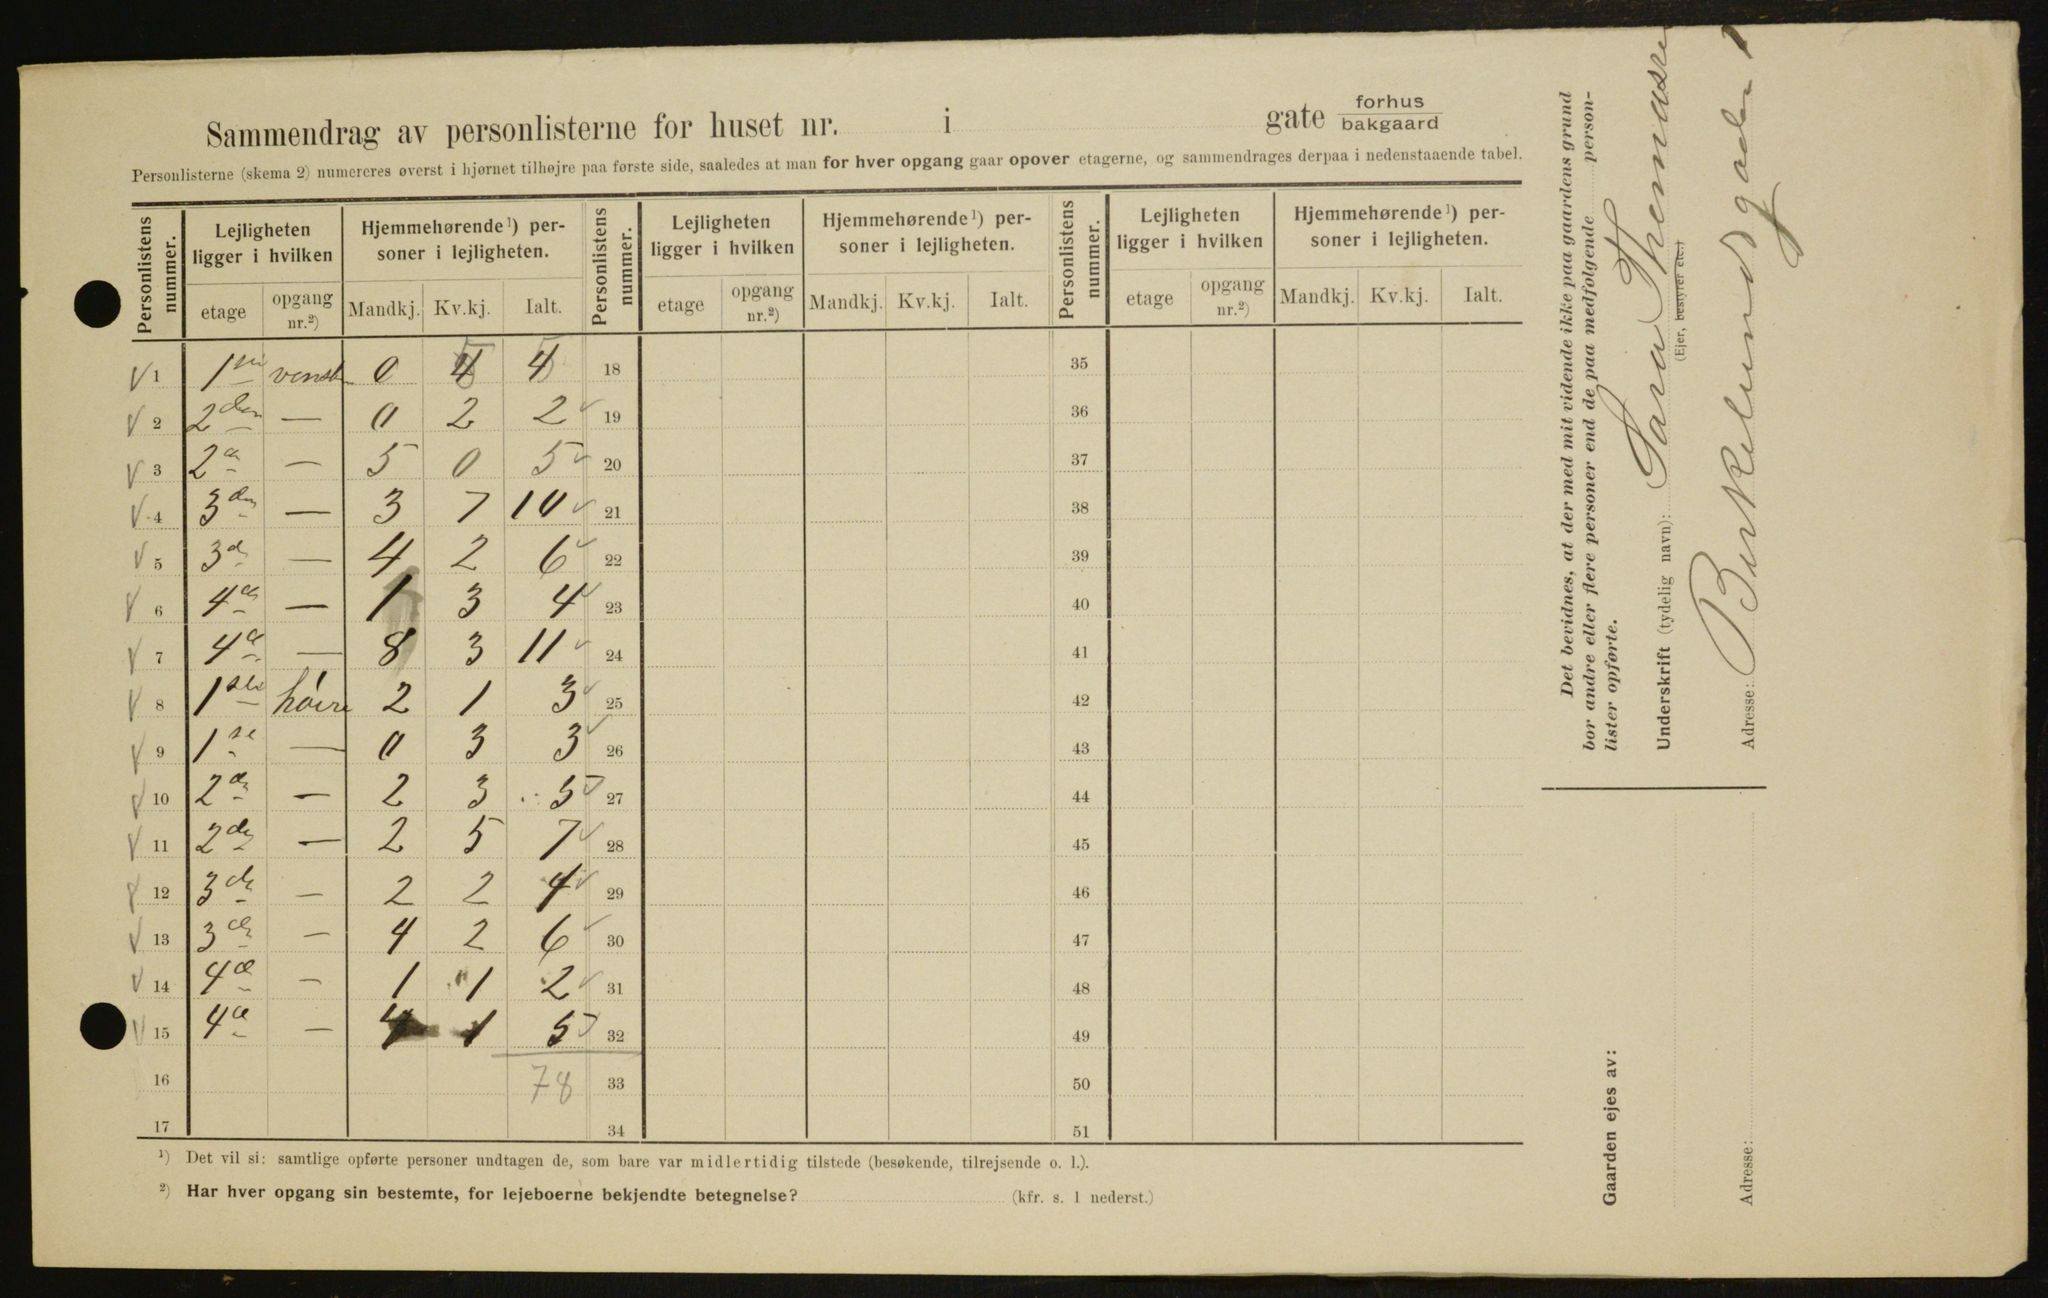 Sammendrag av personlisterne for huset nr. i gate forhus bakgaard
Personlisterne (skema 2) numereres øverst i hjørnet tilhøjre paa første side, saaledes at man for hver opgang gaar opover etagerne, og sammendrages derpaa i nedenstaaende tabel.
Personlistens nummer. Lejligheten ligger i hvilken Hjemmehørende¹) personer i lejligheten. Personlistens nummer. Lejligheten ligger i hvilken Hjemmehørende¹) personer i lejligheten. Personlistens nummer. Lejligheten ligger i hvilken Hjemmehørende¹) personer i lejligheten.
etage opgang nr.²) Mandkj. Kv.kj. Ialt. etage opgang nr.²) Mandkj. Kv.kj. Ialt. etage opgang nr.²) Mandkj. Kv.kj. Ialt.
√ 1 1 0 4 4 18 35
√ 2 2den — 0 2 2 √ 19 36
√ 3 2 — 5 0 5 √ 20 37
√ 4 3 — 3 7 10 √ 21 38
√ 5 3d — 4 2 6 √ 22 39
√ 6 4 — 1 3 4 √ 23 40
√ 7 4 — 8 3 11 √ 24 41
√ 8 1ste höire 2 1 3 √ 25 42
√ 9 1se — 0 3 3 √ 26 43
√ 10 2 — 2 3 5 √ 27 44
√ 11 2 — 2 5 7 √ 28 45
√ 12 3 — 2 2 4 √ 29 46
√ 13 3 — 4 2 6 √ 30 47
√ 14 4 — 1 1 2 √ 31 48
√ 15 4 — 4 1 5 √ 32 49
16 78 33 50
17 34 51
¹) Det vil si: samtlige opførte personer undtagen de, som bare var midlertidig tilstede (besøkende, tilrejsende o. l.).
²) Har hver opgang sin bestemte, for lejeboerne bekjendte betegnelse? (kfr. s. 1 nederst.)
Det bevidnes, at der med mit vidende ikke paa gaardens grund
bor andre eller flere personer end de paa medfølgende person-
lister opførte.
Underskrift (tydelig navn):
(Ejer, bestyrer etc.)
Adresse: Birkelundsgaden 1
Gaarden ejes av:
Adresse: